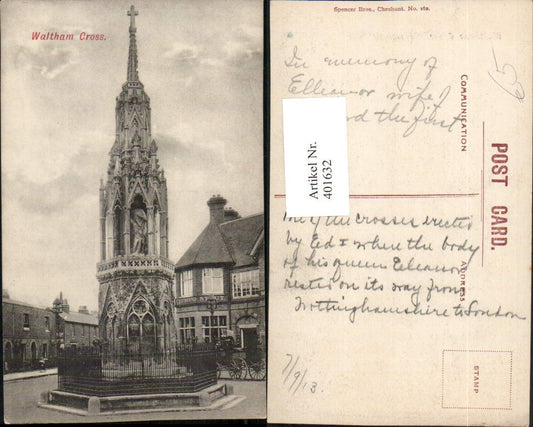 Waltham Cross.
Spencer Bros., Cheshunt. No. 162.
In memory of
Elleanor wife of
rd the first
COMMUNICATION
POST CARD.
ADDRESS
Artikel Nr.
401632
of the crosses erected
by Ed I where the body
of his queen Eleanor
rested on its way from
Nottinghamshire to London
7/9/13.
STAMP